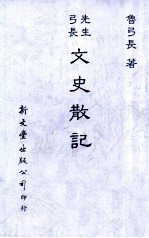 魯弓長 著
弓長先生 文史散記
新文豐出版公司印行